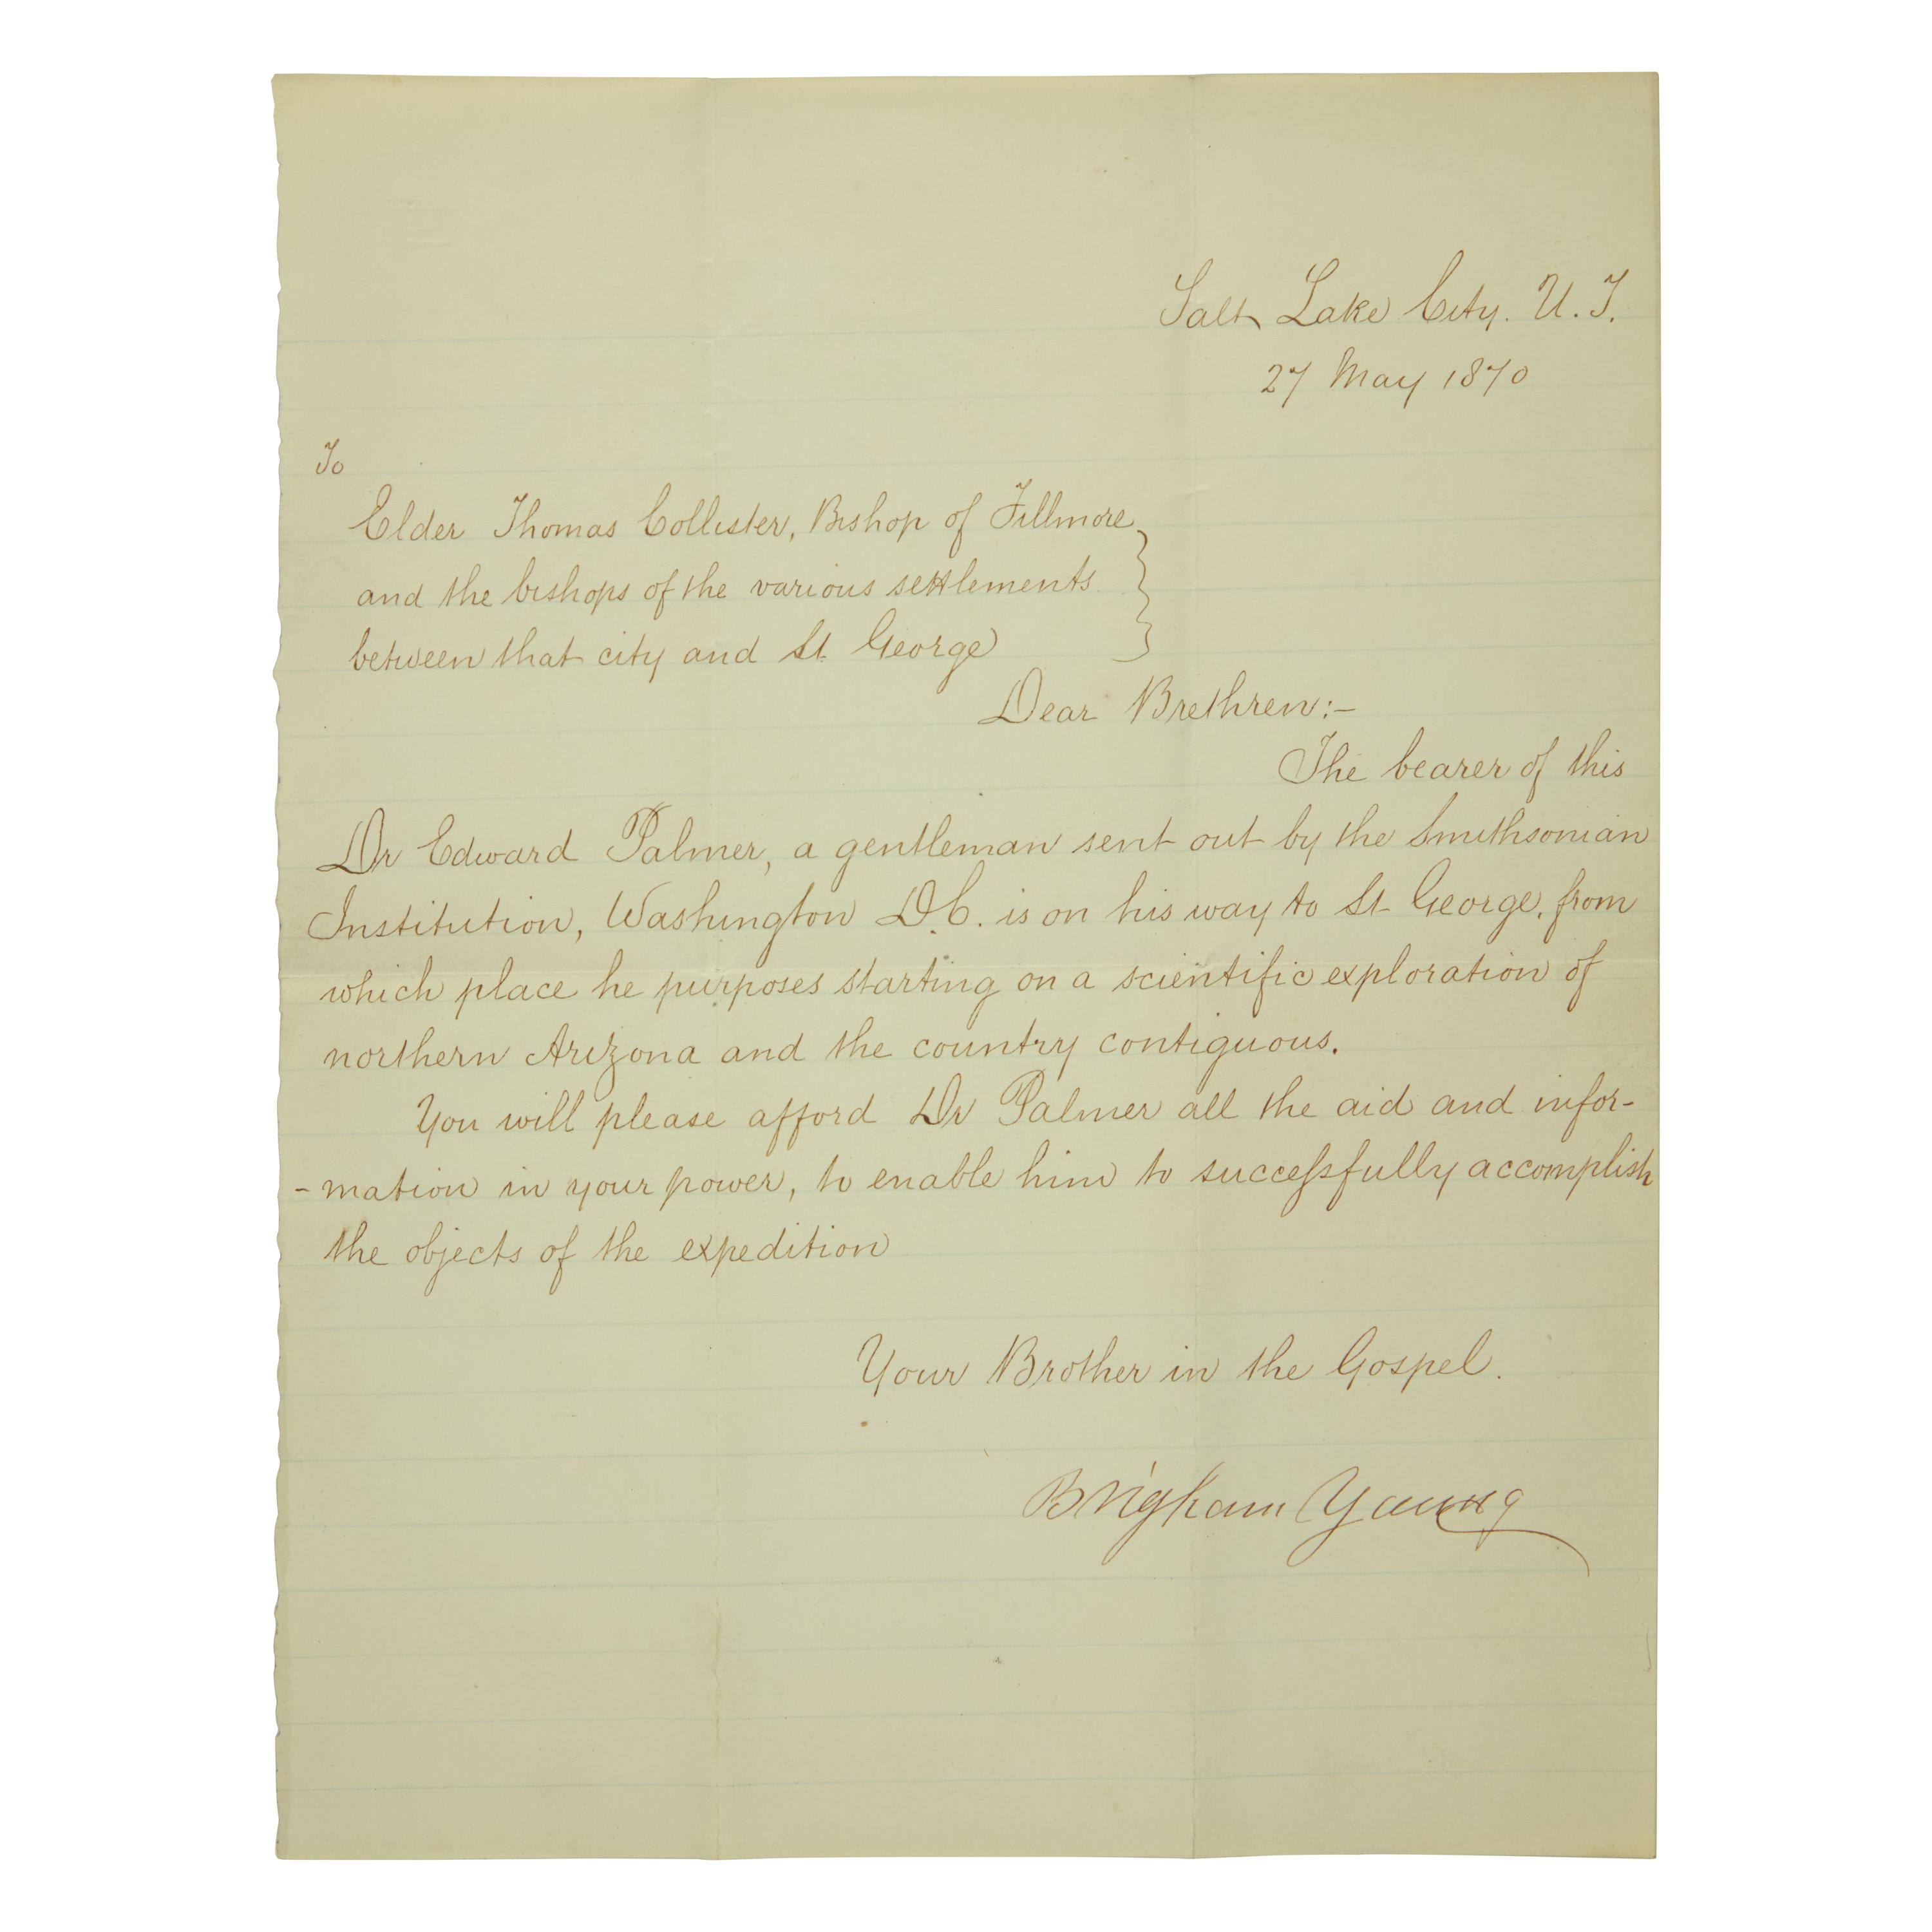 Salt Lake City. U. T.
27 May 1870
To
Elder Thomas Collister, Bishop of Fillmore
and the bishops of the various settlements
between that city and St George
Dear Brethren:-
The bearer of this
Dr Edward Palmer, a gentleman sent out by the Smithsonian
Institution, Washington D.C. is on his way to St George, from
which place he purposes starting on a scientific exploration of
northern Arizona and the country contiguous.
You will please afford Dr Palmer all the aid and infor-
-mation in your power, to enable him to succeſsfully accomplish
the objects of the expedition
Your Brother in the Gospel.
Brigham Young